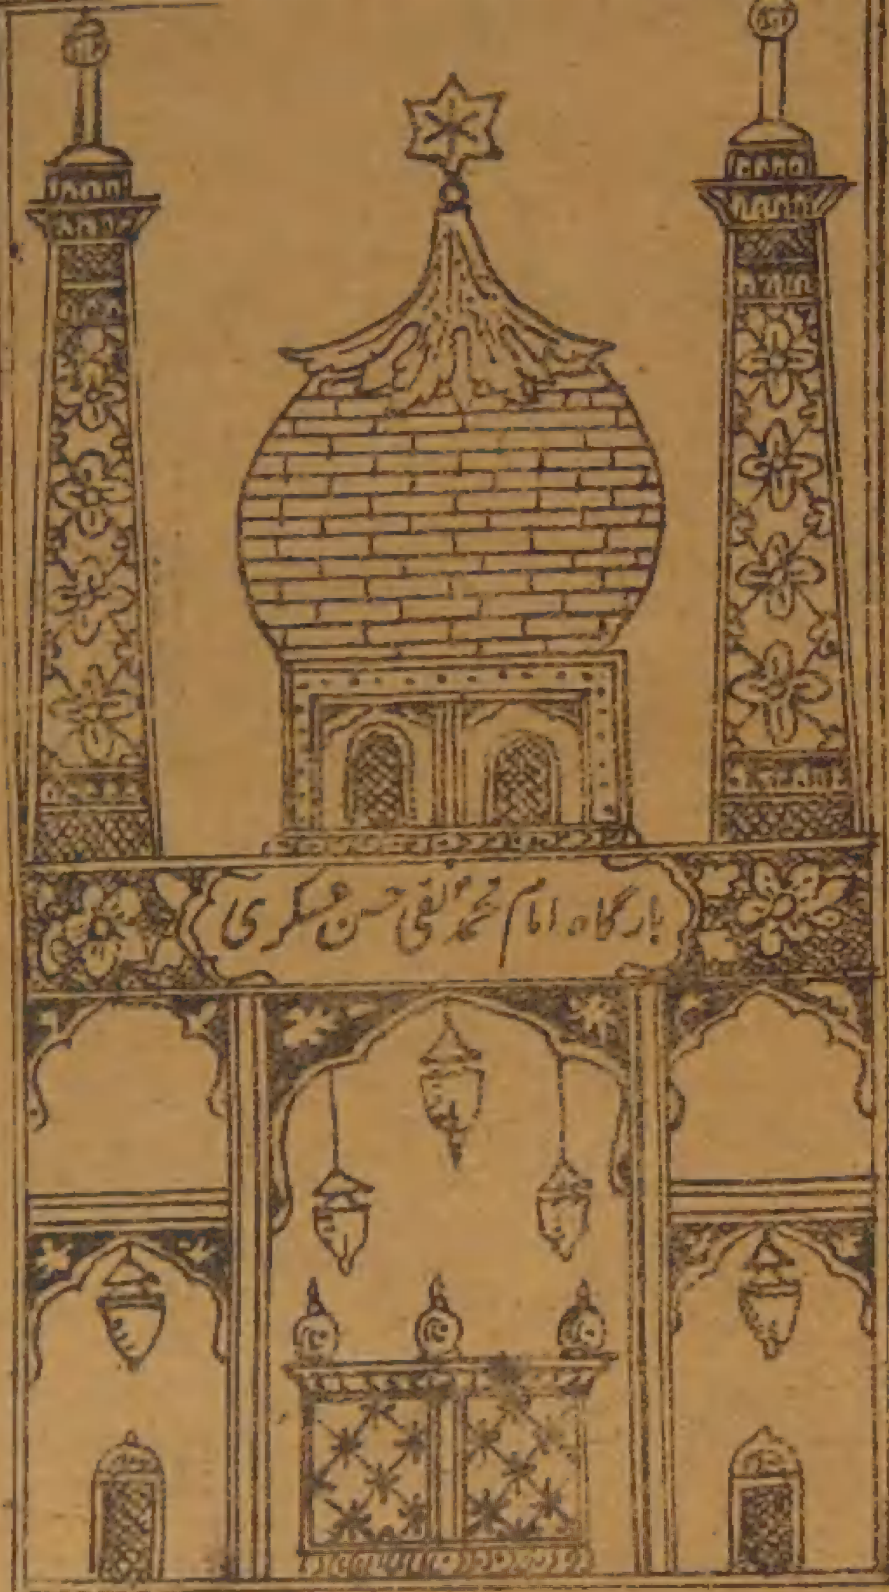 بارگاہ امام محمد نقی حسن عسکری